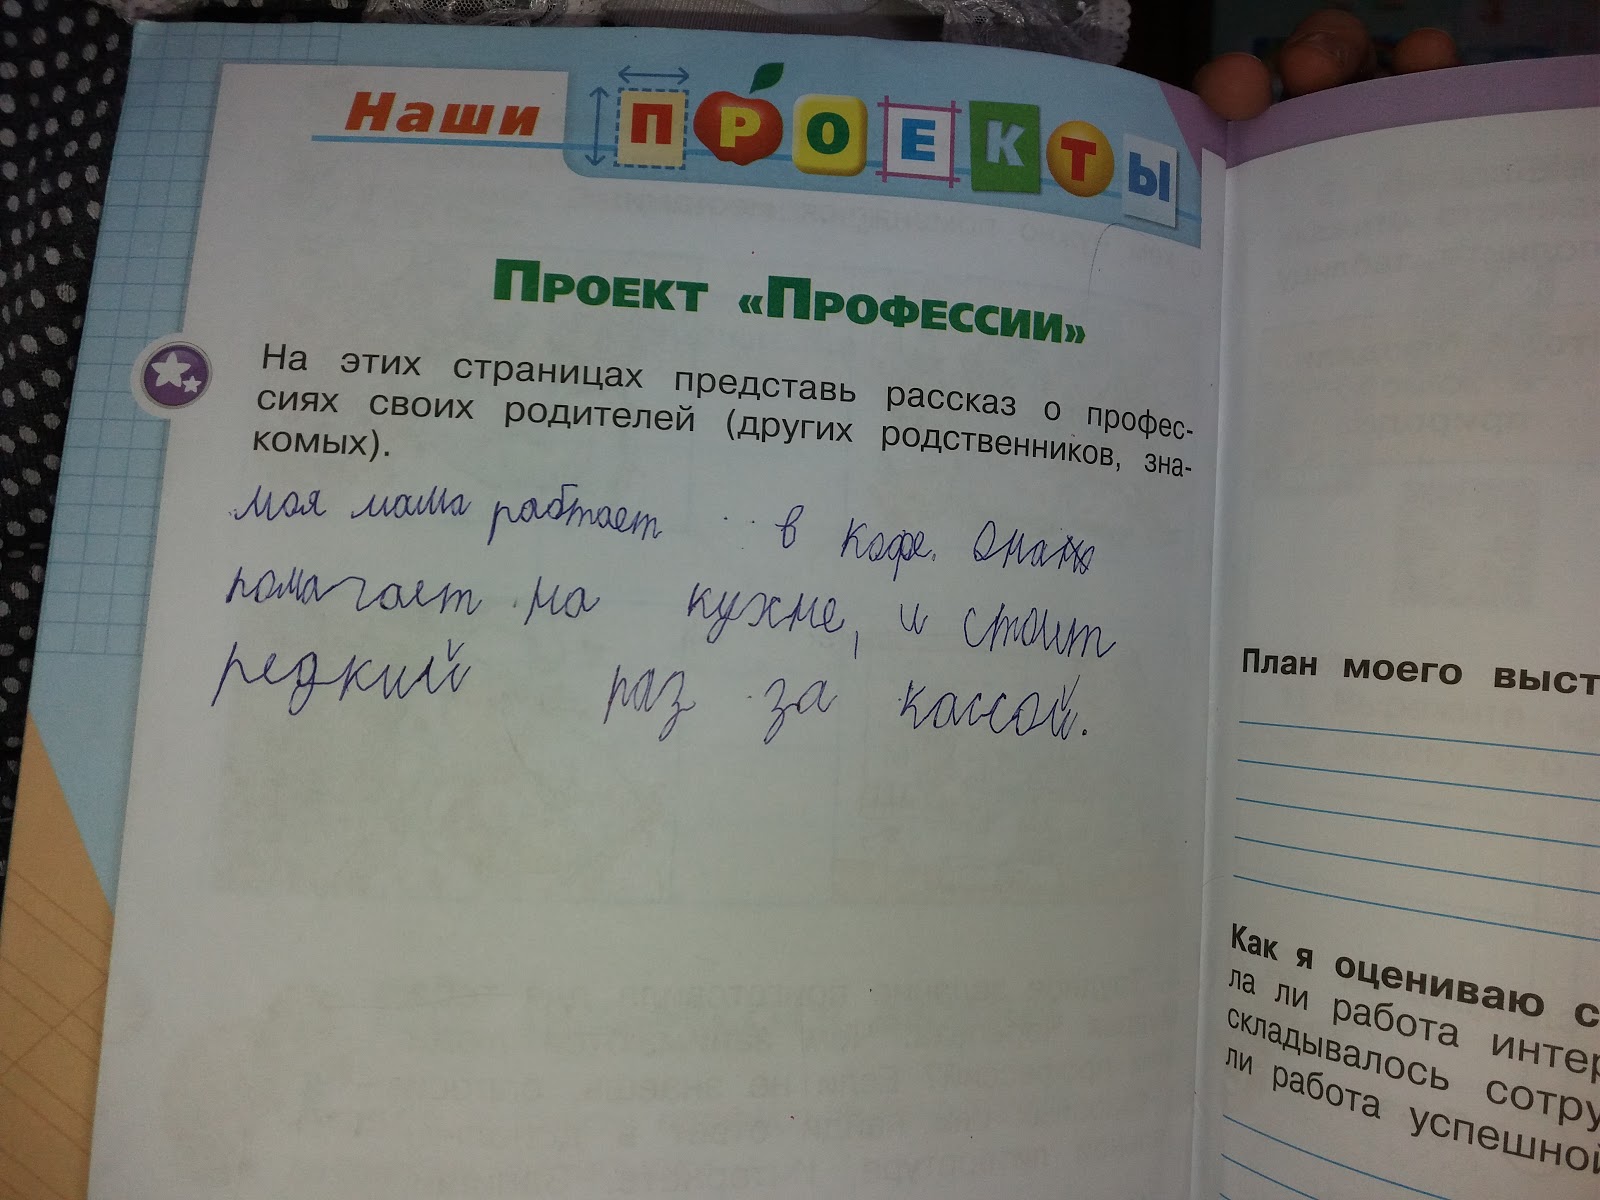 Наши ПРОЕКТЫ
ПРОЕКТ «ПРОФЕССИИ»
На этих страницах представь рассказ о профес-
сиях своих родителей (других родственников, зна-
комых).
моя мама работает в кафе. Она
помагает на кухне, и стоит
редкий раз за кассой.
План моего выст
Как я оцениваю с
ла ли работа интер
складывалось сотру
ли работа успешной